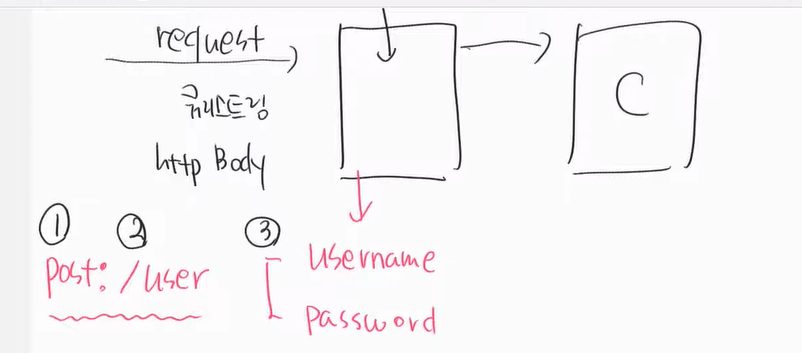 request
쿼리스트링
http Body
C
① ② ③
post: /user
username
password